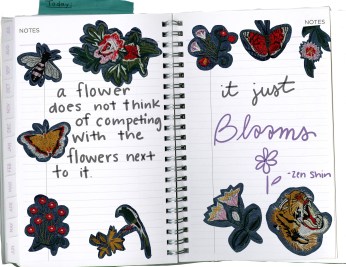 Today
NOTES
NOTES
a flower
does not think
of competing
with the
flowers next
to it.
it just
Blooms
-Zen Shin